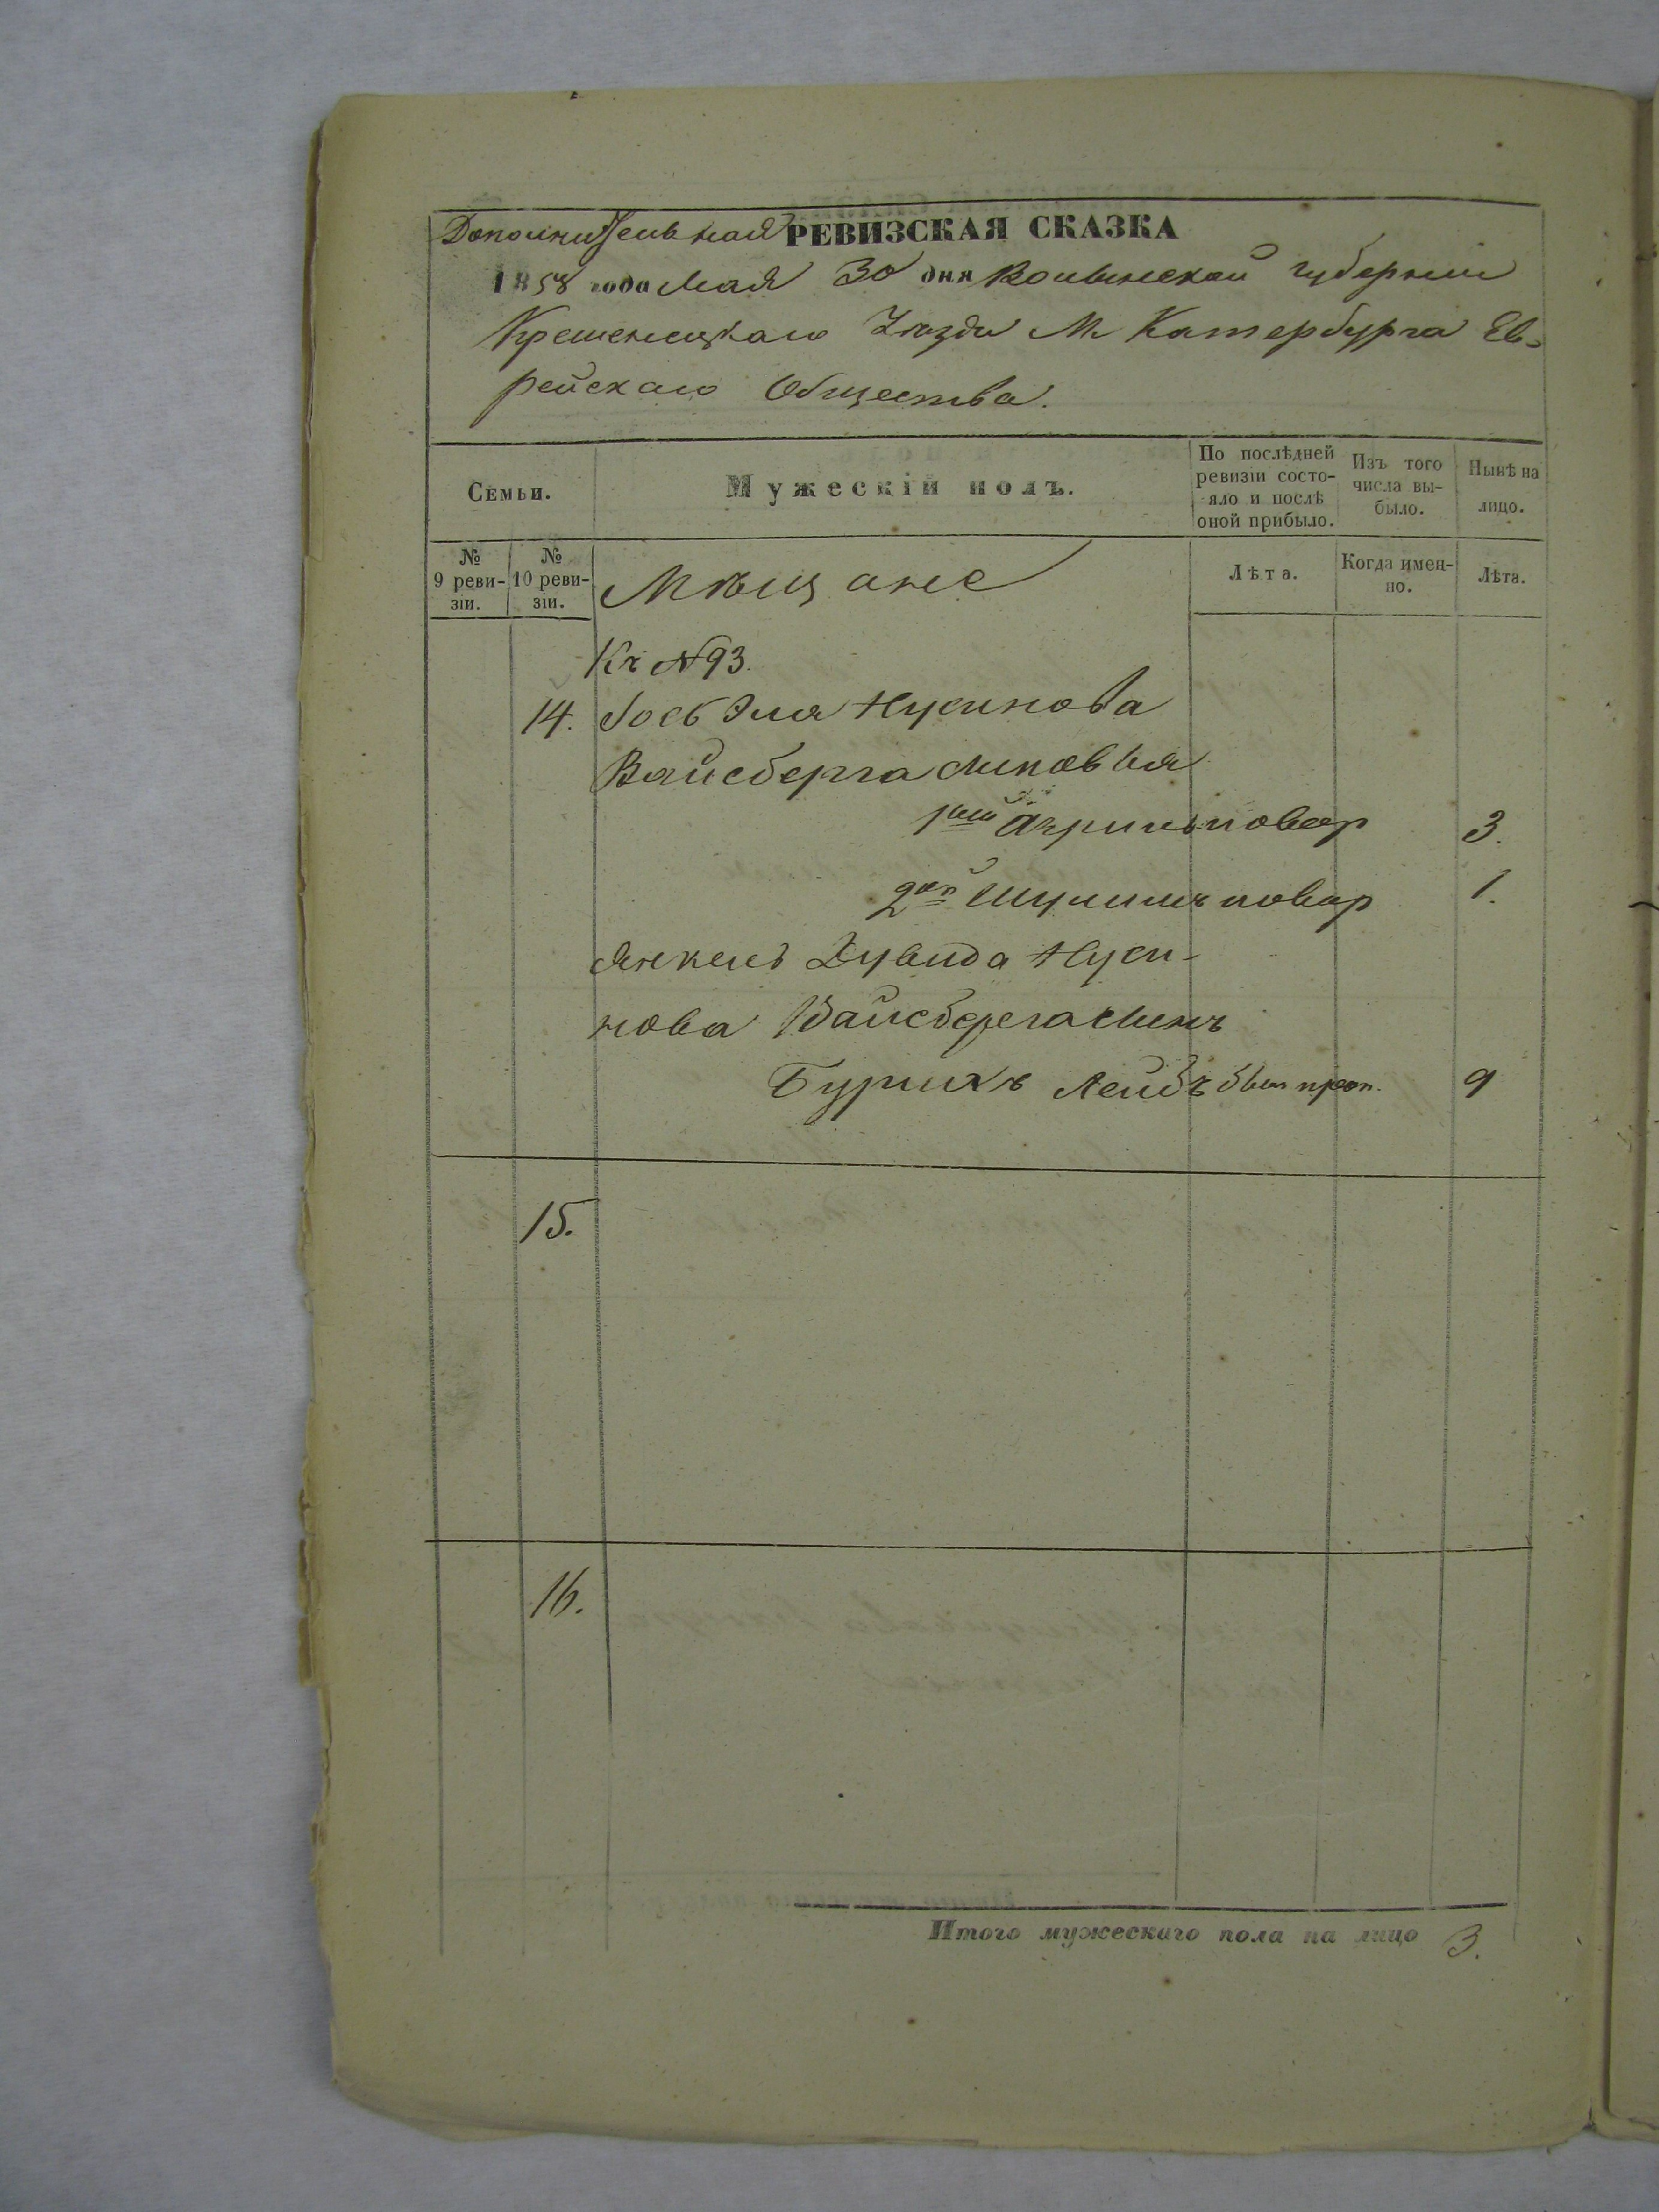 Дополнительная РЕВИЗСКАЯ СКАЗКА
1858 года Мая 30 дня Волынской губернии
Кременецкаго Уѣзда М Катербурга Ев-
рейскаго Общества.
Семьи.
Мужескій полъ.
По послѣдней ревизіи состо-яло и послѣ оной прибыло.
Изъ того числа вы-было.
Нынѣ на лицо.
№ 9 реви-зіи.
№ 10 реви-зіи.
Мѣщане
Лѣта.
Когда имен-но.
Лѣта.
Къ №93.
14. Іось Эля Нусинова
Вайсберга сыновья
1ый новор 3.
2ой Шулимъ новор 1.
Янкель Дувида Нуси-
нова Вайсберга сынъ
Бурихъ Лейбъ был проп. 9
15.
16.
Итого мужескаго пола на лицо 3.